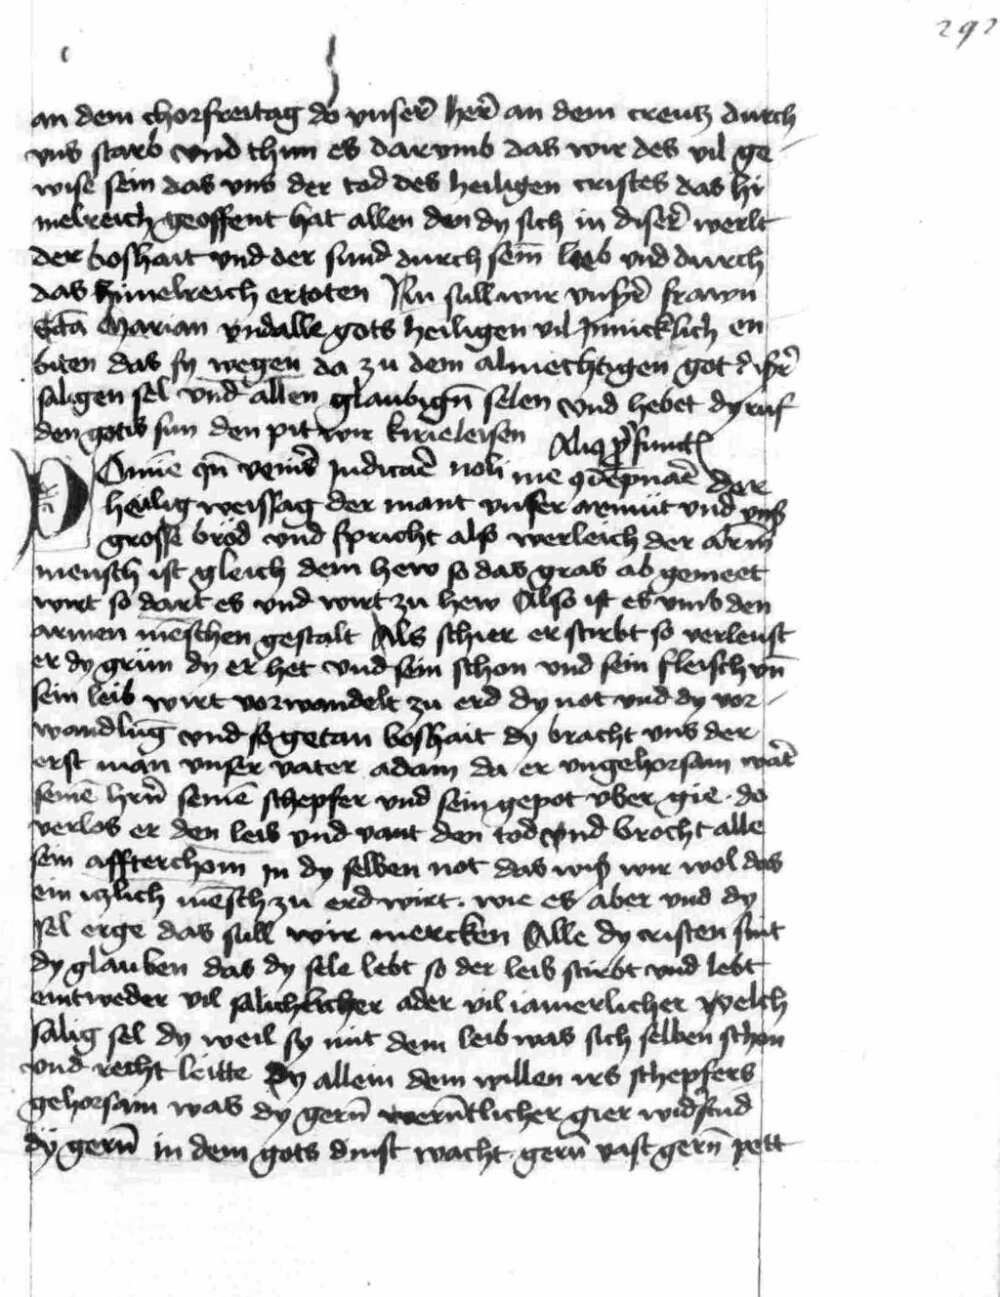 292
an dem chorfreitag do vnserē herē an dem creutz durch
vns starb vnd thun es darvmb das wir des vil ge-
wise sein das vns der tod des heiligen cristes das hi
melreich geoffent hat allen den dy sich in diserē werlt
der boshait vnd der sund durch sein̄ lieb vnd durch
das himelreich ertoten Nu sull wir vnsr̄ frawn
Sctā Marian vnd alle gots heiligen vil Inniklich en
biten das sy wegen da zu dem almechtigen got
saligen sel vnd allen glaubign̄ selen vnd hebet dy ruf
den gotis sun den pit wir kirieleisen
Aliꝰ ꝓ functꝭ
Domīe qn̄ venīs Iudicarē noli me ꝯdēpnarē der
heilig weissag der mant vnser armüt vnd vnß
grosse bröd vnd spricht alß werleich der arm̄
mensch ist gleich dem hew so das gras ab gemeet
wirt so dart es vnd wirt zu hew Also ist es vmb den
armen mēschen gestalt Als schier er stirbt so verleust
er dy grün dy er het vnd sein schon vnd sein fleisch vn̄
sein leib wirt vorwandelt zu erd dy not vnd dy vor-
wandlūg vnd so getan boshait dy bracht vns der
erst man vnser vater adam da er vngehorsam wār
seinē hrn̄ seinē schepfer vnd sein gepot vber gie . do
verlos er den leib vnd vant den tod vnd brocht alle
sein affterchom in dy selben not das wiß wir wol das
ein iczlich mēsch zu erd wirt . wie es aber vnd dy
sel erge das sull wir mercken Alle dy cristen sint
dy glauben das dy sele lebt so der leib stirbt vnd lebt
eintweder vil salichlicher ader vil iamerlicher Welch
salig sel dy weil sy mit dem leib was sich selben schon
vnd recht leitte Dy allein dem willen irs schepfers
gehorsam was dy gern̄ wern̄tlicher gier widstūd
dy gern̄ in dem gots dinst wacht . gern̄ vast gern̄ pett